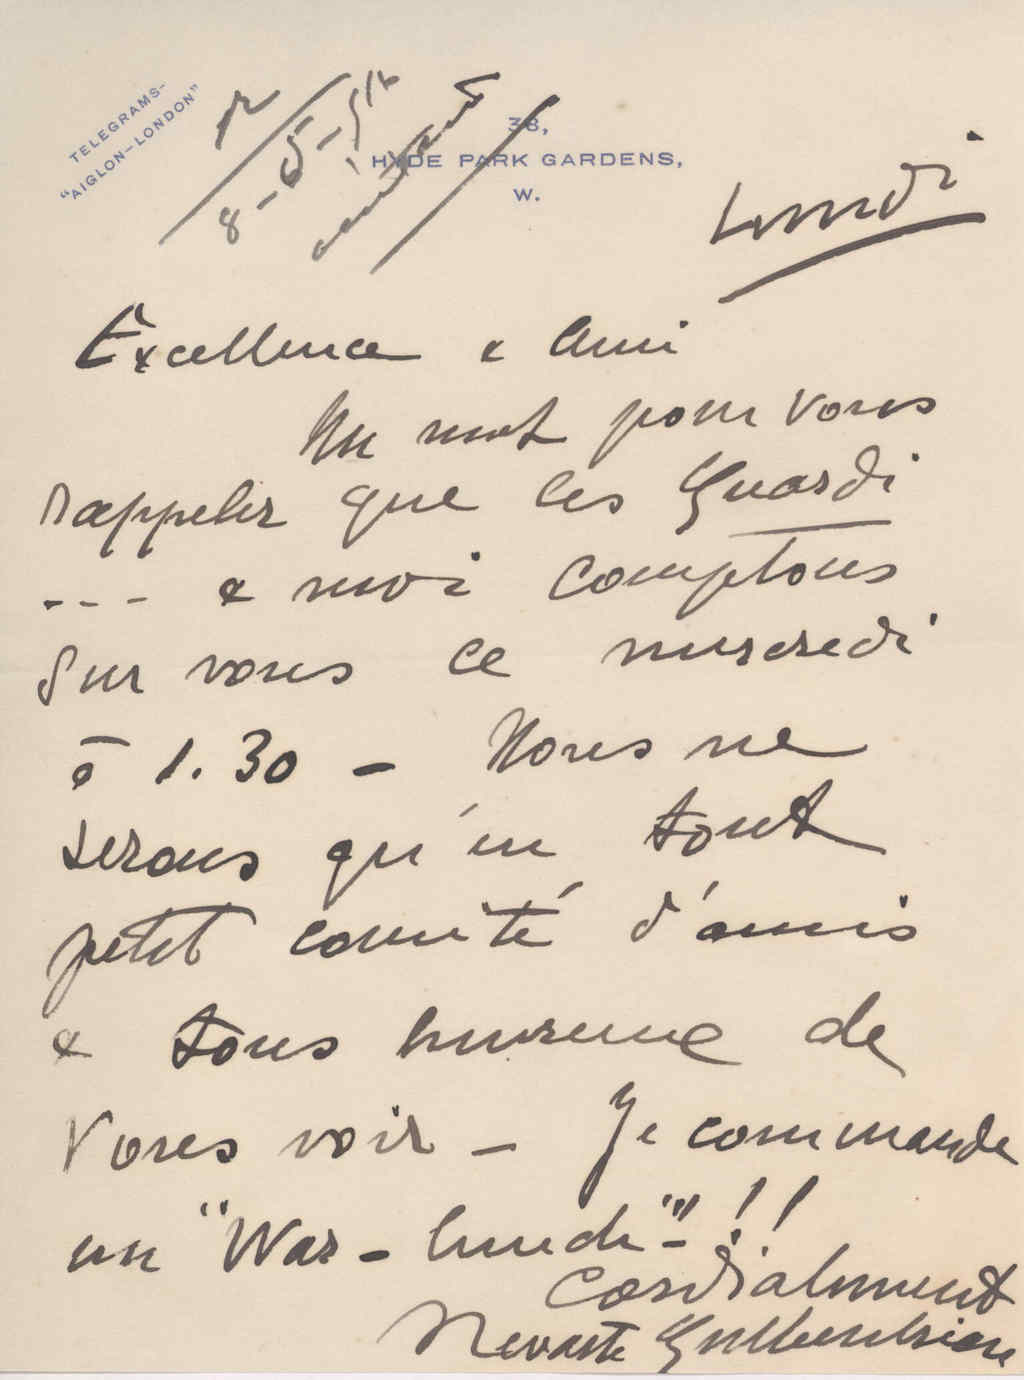 TELEGRAMS-
"AIGLON-LONDON"
R/
8-5-
38,
HYDE PARK GARDENS,
W.
Lundi
Excellence & Ami
Un mot pour vous
rappeler que les Guardi
--- & moi comptons
sur vous ce mercredi
à 1.30 - Nous ne
serons qu'en tout
petit comité d'amis
& tous heureux de
vous voir - Je commande
un "War-lunch"-!!
Cordialement
Nevarte Gulbenkian